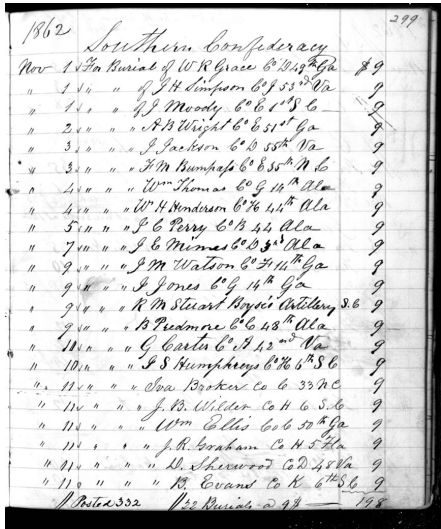 299
1862
Southern Confederacy
Nov 1 " For Burial of W R Grace Co D 49th Ga $9
" 1 " " " of J H Simpson Co J 53rd Va 9
" 1 " " " of J Moody Co E 1st S C 9
" 2 " " " A B Wright Co E 51st Ga 9
" 3 " " " J Jackson Co D 55th Va 9
" 3 " " " F M Bumpass Co E 35th N C 9
" 4 " " " Wm Thomas Co G 14th Ala 9
" 4 " " " W H Henderson Co H 44th Ala 9
" 5 " " " J C Perry Co B 44 Ala 9
" 7 " " " J E Mimes Co D 3rd Ala 9
" 9 " " " J M Watson Co F 14th Ga 9
" 9 " " " J Jones Co G 14th Ga 9
" 9 " " " R M Stuart Artillery S.C 9
" 9 " " " B Predmore Co C 48th Ala 9
" 10 " " " G Carter Co A 42nd Va 9
" 10 " " " J S Humphreys Co H 6th S C 9
" 11 " " " Iva Broker Co C 33 NC 9
" 11 " " " J. B. Wilder Co H 6 S.C 9
" 11 " " " Wm Ellis Co C 50th Ga 9
" 11 " " " J. R. Graham Co H 5 Fla 9
" 11 " " " D. Sherwood Co D 48 Va 9
" 11 " " " B. Evans Co K 6th S.C 9
Posted 332 22 Burials a 9$ — 198